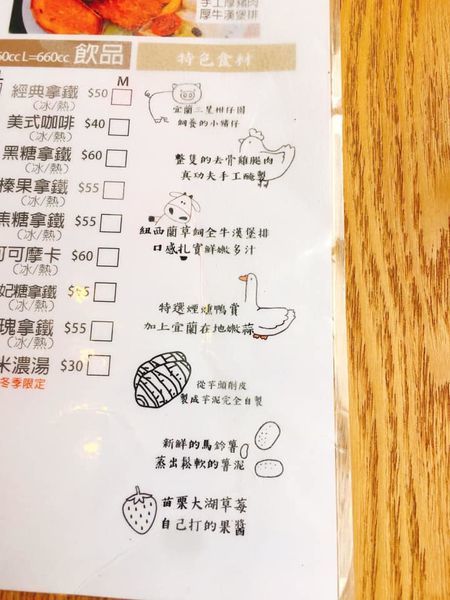 手工厚豬肉
厚牛漢堡排
60cc L=660cc 飲品
特色食材
M
經典拿鐵 $50
(冰/熱)
美式咖啡 $40
(冰/熱)
黑糖拿鐵 $60
(冰/熱)
榛果拿鐵 $55
(冰/熱)
焦糖拿鐵 $55
(冰/熱)
可可摩卡 $60
(冰/熱)
妃糖拿鐵
(冰/熱)
瑰拿鐵 $55
(冰/熱)
米濃湯 $30
冬季限定
宜蘭三星柑仔園
飼養的小豬仔
整隻的去骨雞腿肉
真功夫手工醃製
紐西蘭草飼全牛漢堡排
口感扎實鮮嫩多汁
特選煙燻鴨賞
加上宜蘭在地嫩蒜
從芋頭削皮
製成芋泥完全自製
新鮮的馬鈴薯
蒸出鬆軟的薯泥
苗栗大湖草莓
自己打的果醬